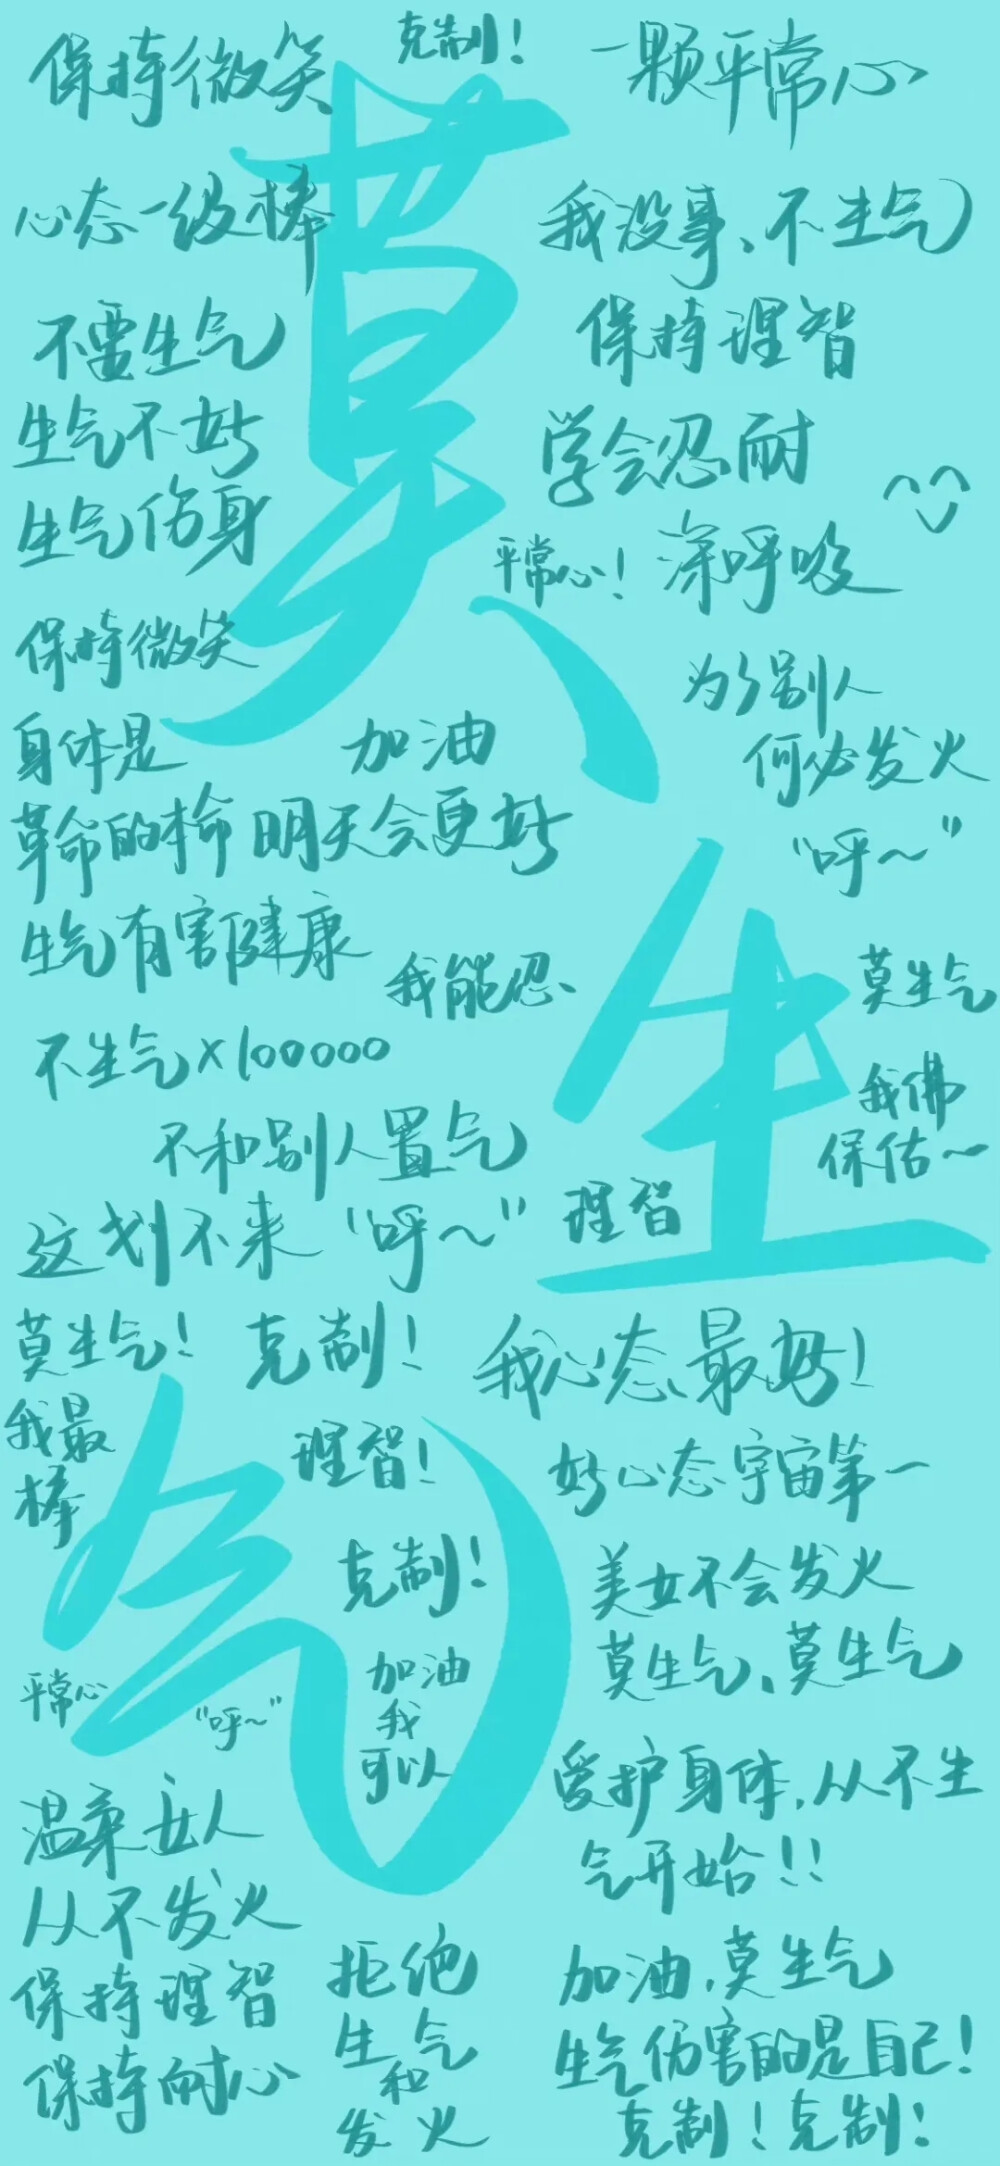 克制！
保持微笑
一颗平常心
心态一级棒
我没事、不生气
不需生气
保持理智
生气不好
学会忍耐
生气伤身
平常心！
深呼吸
保持微笑
为了别人
何必发火
“呼～”
身体是
革命的本命
加油
明天会更好
生气有害健康
我能忍、
莫生气
不生气×100000
我佛
保佑～
不和别人置气
这划不来“呼～”
理智
莫生气！
克制！
我心态最好！
我最
棒
理智！
好心态宇宙第一
克制！
美女不会发火
莫生气、莫生气
平常心
“呼～”
加油
我
可以
爱护身体，从不生
气开始！！
温柔女人
从不发火
保持理智
保持耐心
拒绝
生气
和
发火
加油，莫生气
生气伤害的是自己！
克制！克制！
莫
生
气